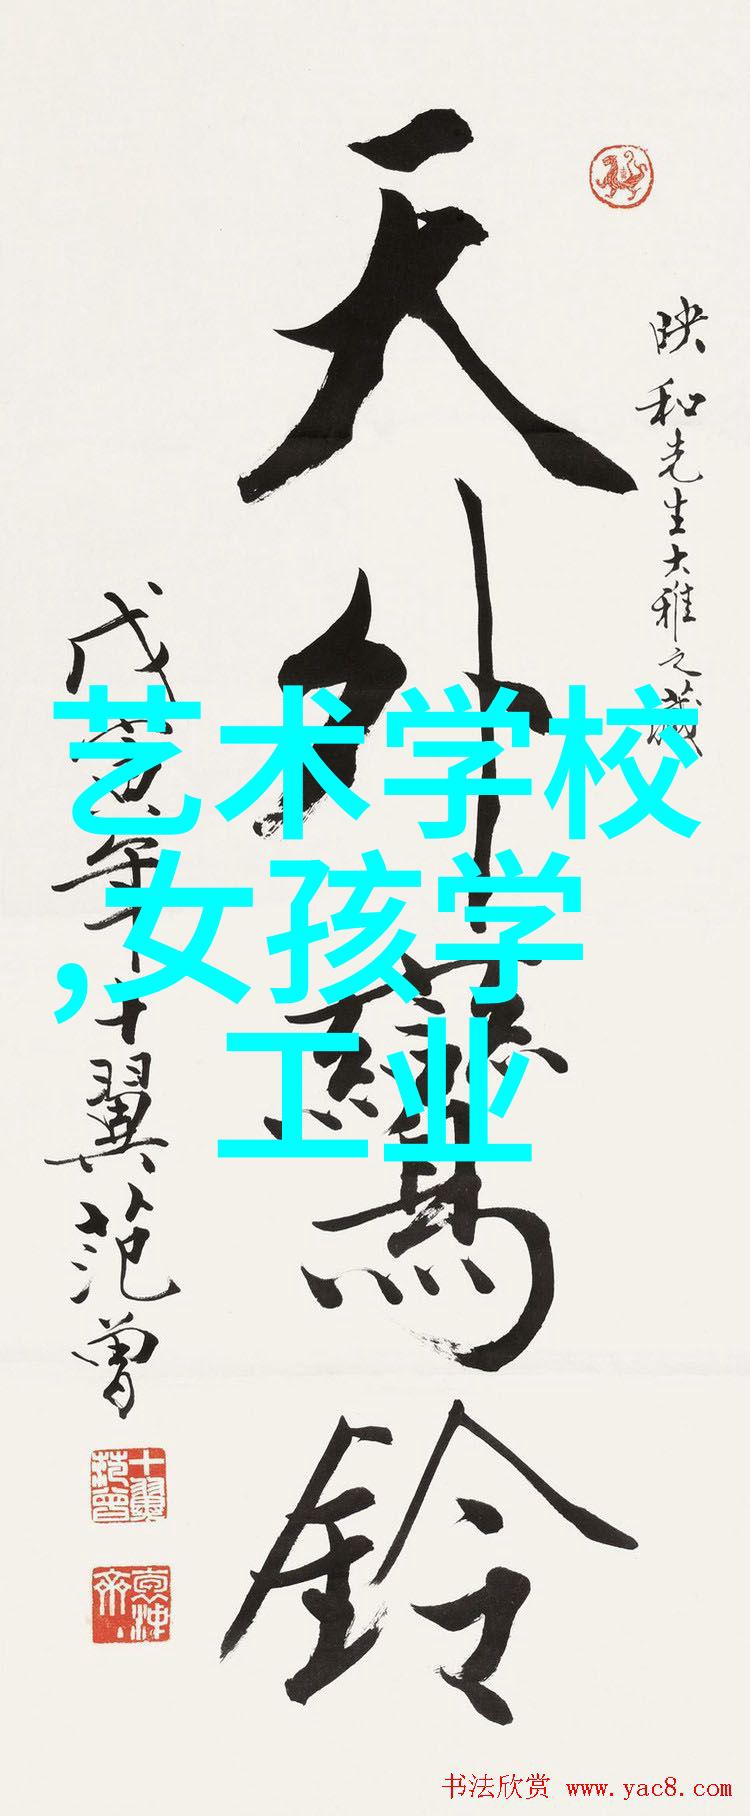 映和先生大雅之藏
天外鸞鈴
戊寅年十翼范曾
艺术学校
,女孩学
工业
十翼范曾
书法欣赏 www.yac8.com